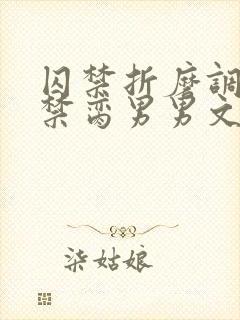 囚禁折磨調
禁脔男男文
柒姑娘